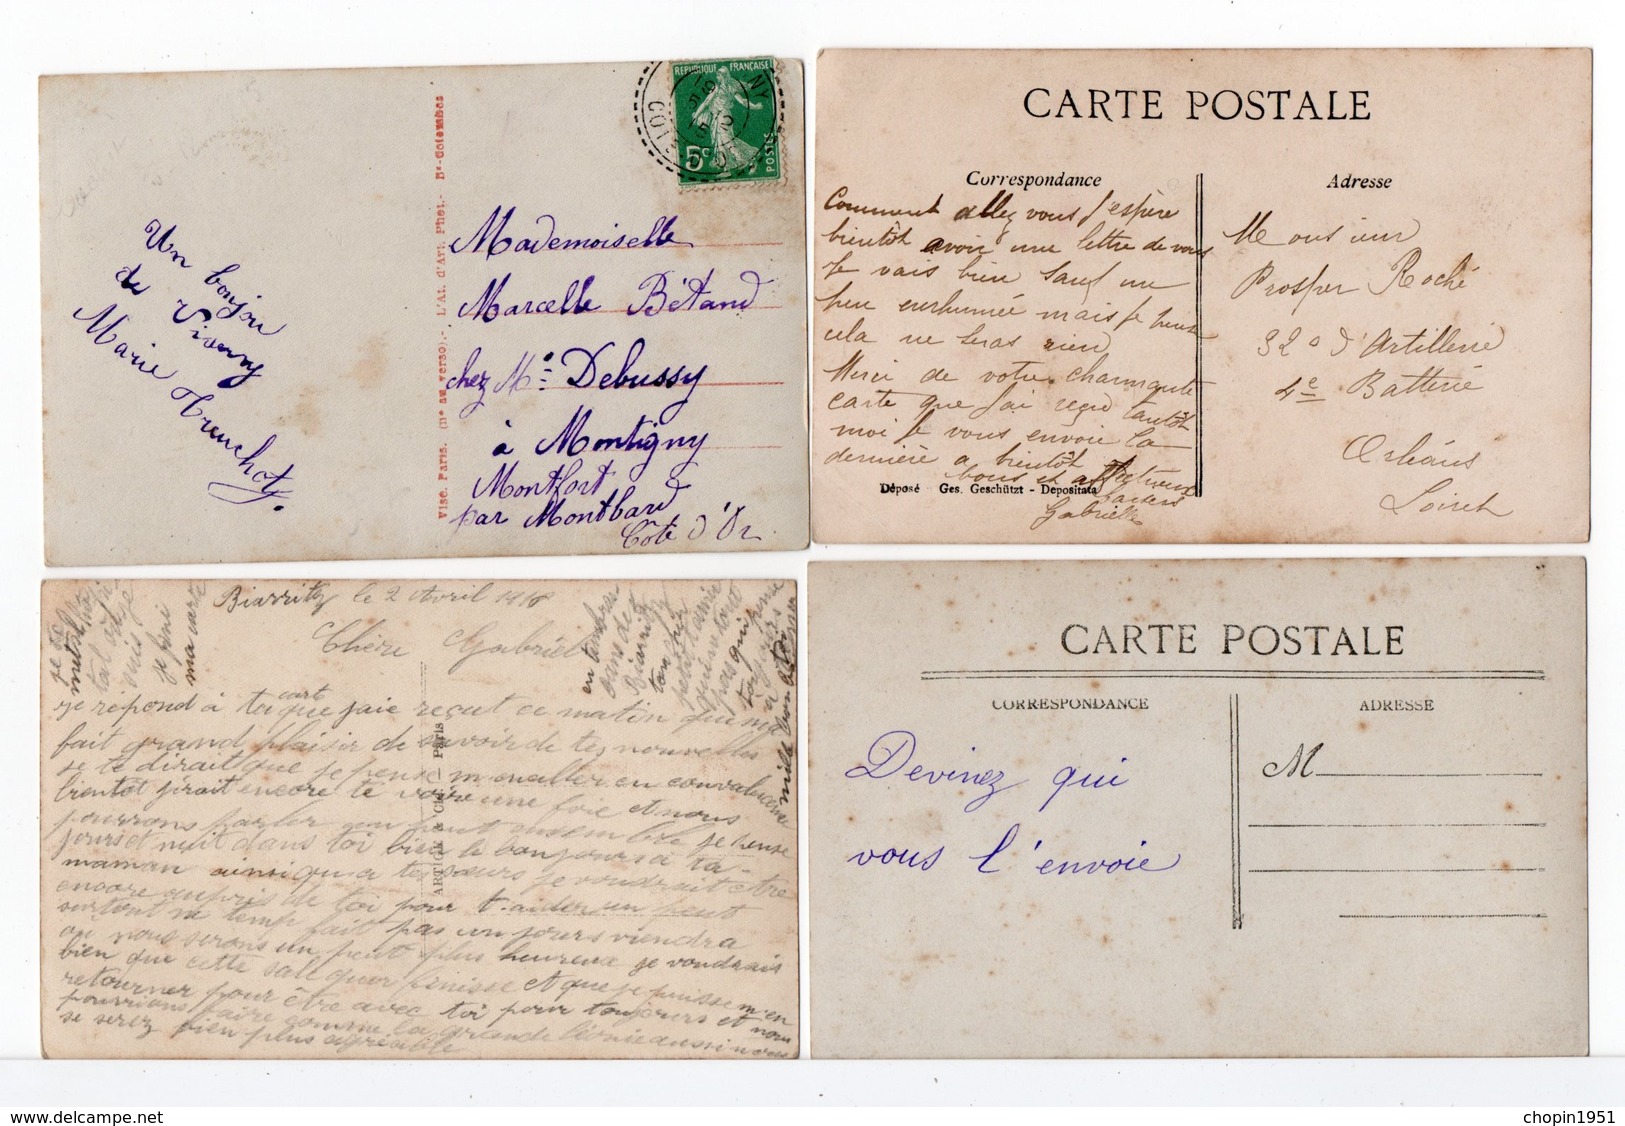 Un bonjou
de Vianny
Marie Truchot
Visc. Paris. (n° au verso).- L'At. d'Art. Phot.- Bs-Colombes
REPUBLIQUE FRANÇAISE
5c
POSTES
Mademoiselle
Marcelle Bétand
chez Me Debussy
à Montigny
Montfort
par Montbard
Côte d'Or
CARTE POSTALE
Correspondance
Adresse
Comment allez vous J'espère
bientôt avoir une lettre de vous
Je vais bien sauf un
peu enrhumée mais Je pense
cela ne seras rien
Merci de votre charmante
carte que J'ai reçu tantôt
moi Je vous envoie la
dernière a bientôt
bons et affectueux
baisers
Gabrielle
Déposé - Ges. Geschützt - Depositata
Monsieur
Prosper Roché
32e d'Artillerie
4e Batterie
Orléans
Loiret
Biarritz le 2 Avril 1918
Chère Gabriel
je répond à ta carte que jaie reçut ce matin qui ma
fait grand plaisir de savoir de tes nouvelles
je te dirait que je pense m'enaller en convalecence
bientot j'irait encore te voire une foie et nous
pourrons parler un peut ensemble je pense
jours et nuit dans toi bien le bonjours a ta
maman ainsi qu'a tes sœurs je voudrait être
encore aupris de toi pour t'aider un peut
surtout ne temp fait pas un jours viendra
ou nous serons un peut plus heureux je voudrais
bien que cette sale guer finisse et que je puisse m'en
retourner pour être avec toi pour toujours et nous
pourrions faire comme la grande Eugénie aussi nous
se serez bien plus agréable
je fini
ma carte
en tembras-
sans de
Biarritz
ton
petit
pas qui
pense
à toi
mille bon baiser
CARTE POSTALE
CORRESPONDANCE
ADRESSE
Devinez qui
vous l'envoie
M
delcampe.net
chopin1951